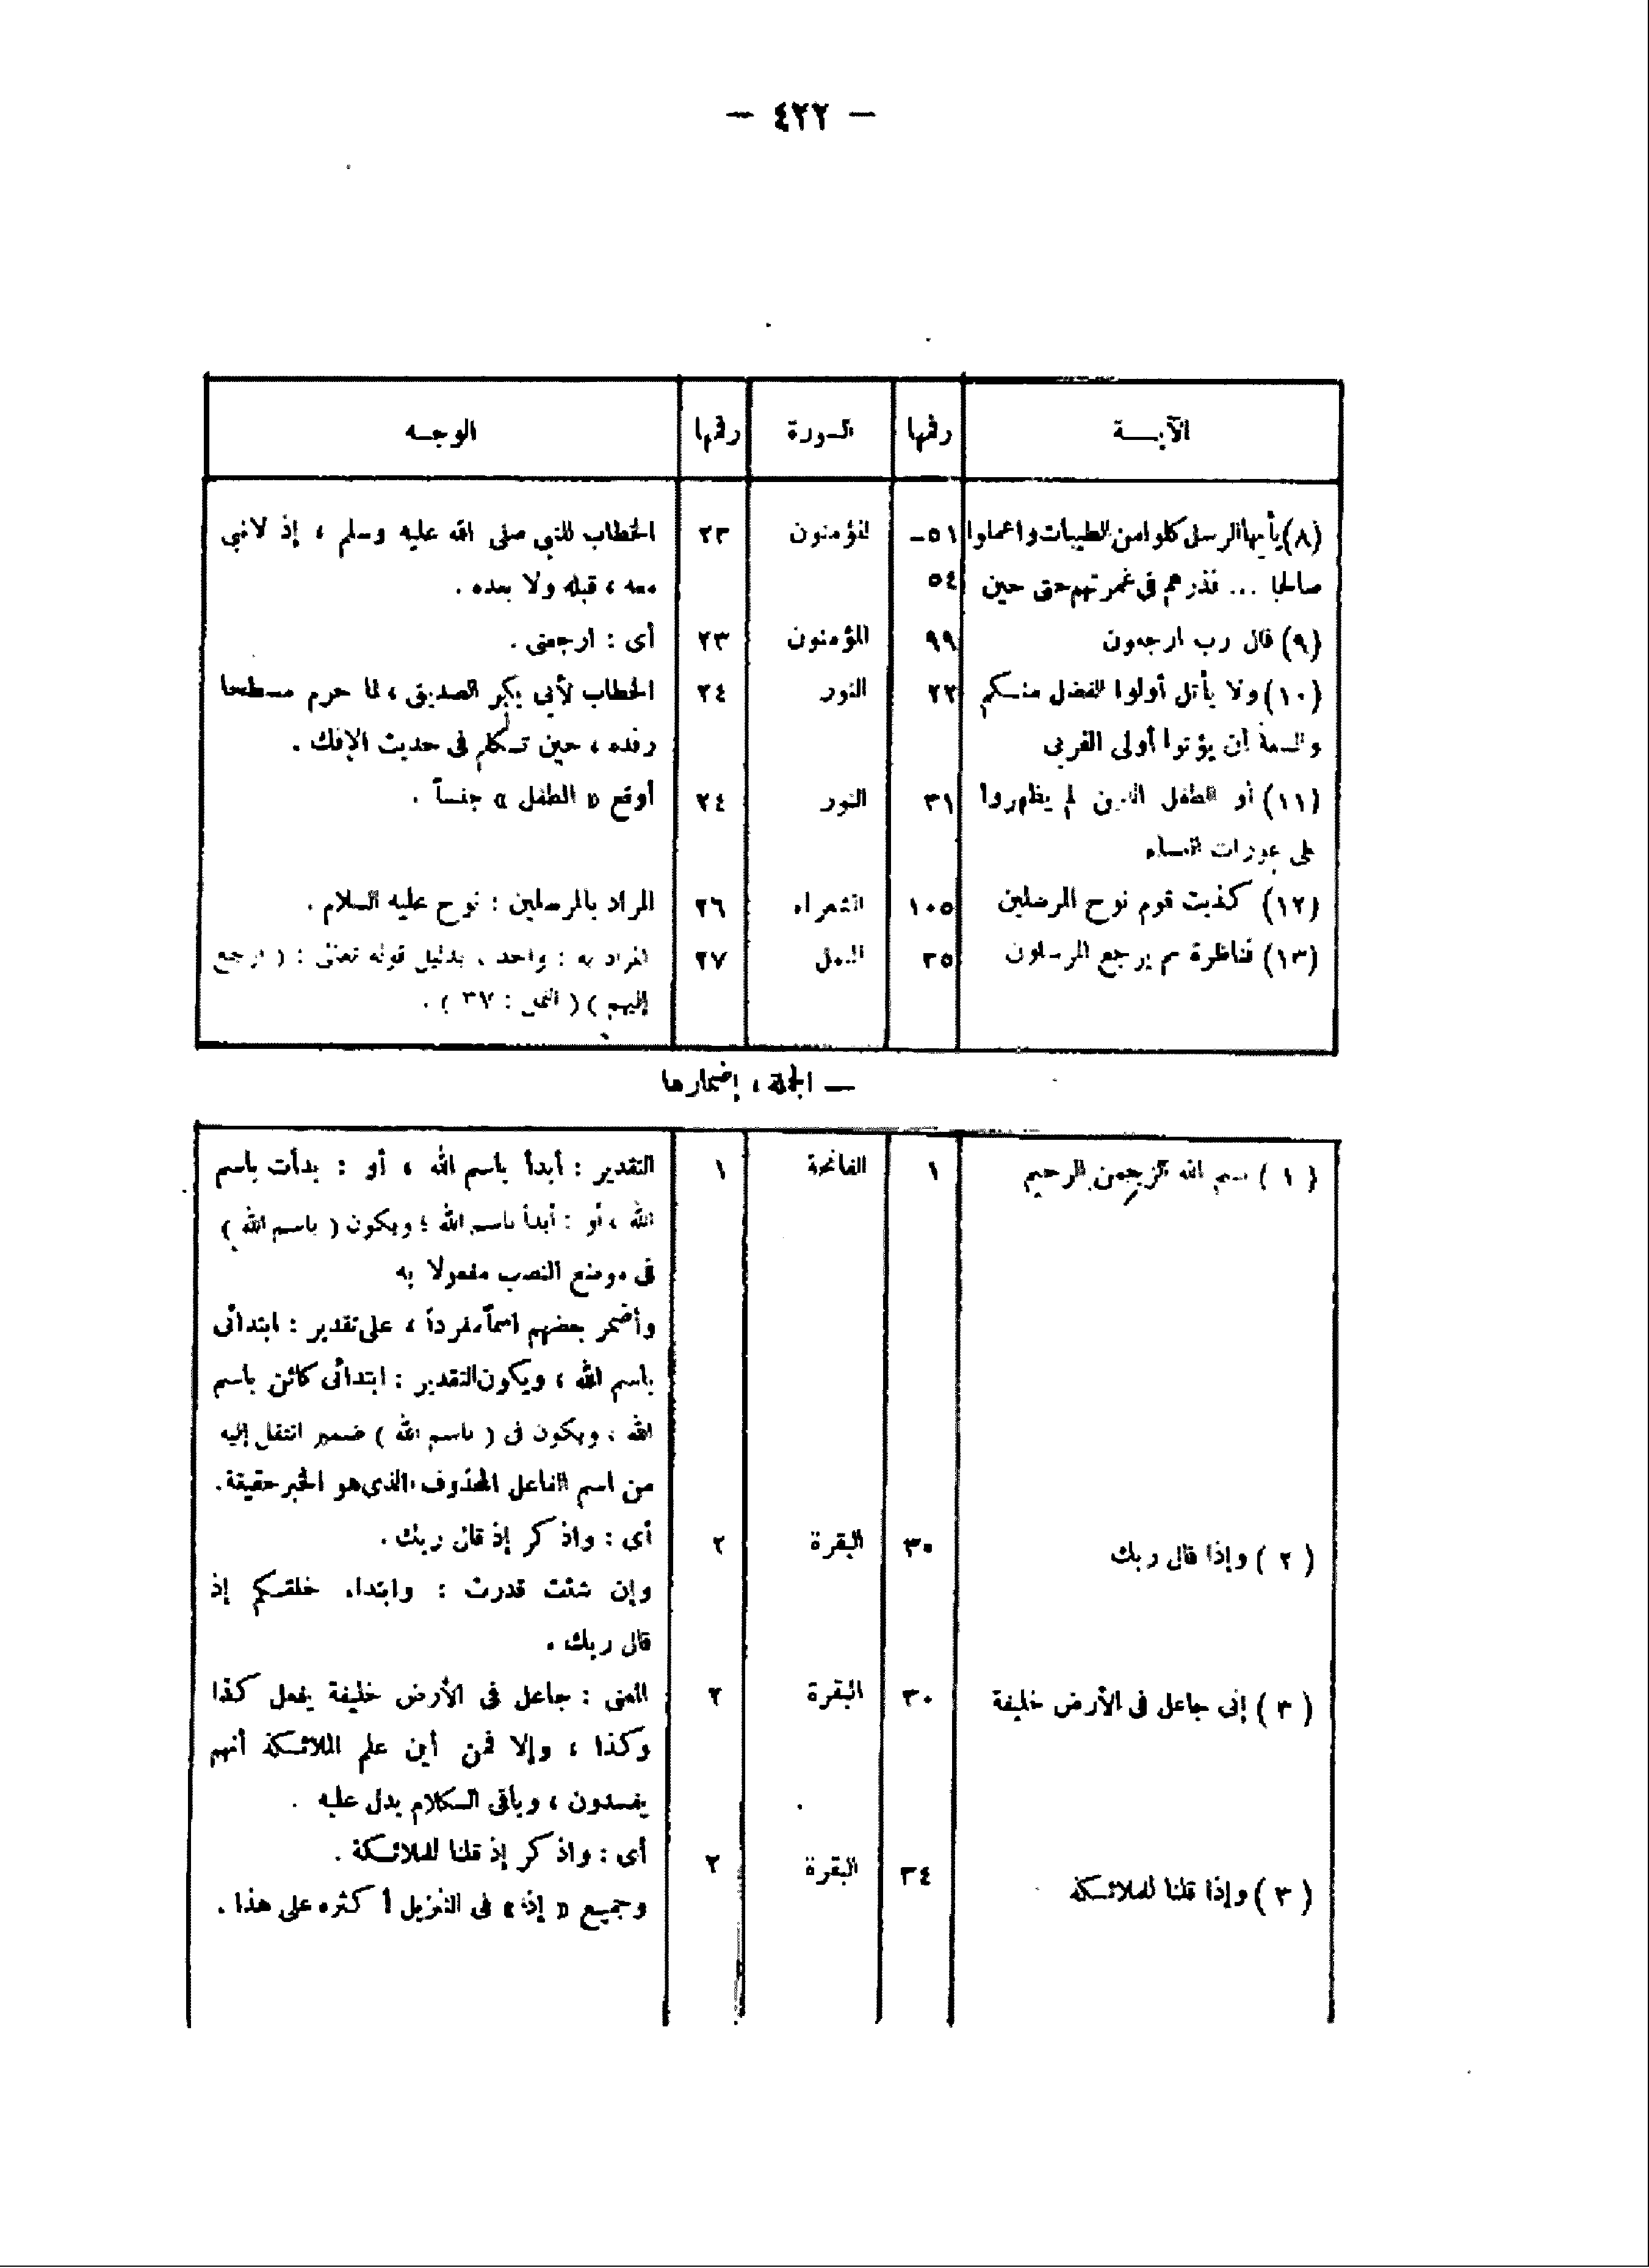 — ٤٢٢ —
الآيـــة رقمها السورة رقمها الوجـه
(٨) يأيها الرسل كلوا من الطيبات واعملوا ٥١- المؤمنون ٢٣ الخطاب للنبي صلى الله عليه وسلم ، إذ لا نبي
صالحا ... فذرهم فى غمرتهم حتى حين ٥٤ معه ، قبله ولا بعده .
(٩) قال رب ارجعون ٩٩ المؤمنون ٢٣ أى : ارجعنى .
(١٠) ولا يأتل أولوا الفضل منكم ٢٢ النور ٢٤ الخطاب لأبي بكر الصديق ، لما حرم مسطحا
والسعة أن يؤتوا أولى القربى رفده ، حين تكلم فى حديث الإفك .
(١١) أو الطفل الذين لم يظهروا ٣١ النور ٢٤ أوقع « الطفل » جنساً .
على عورات النساء
(١٢) كذبت قوم نوح المرسلين ١٠٥ الشعراء ٢٦ المراد بالمرسلين : نوح عليه السلام .
(١٣) فناظرة بم يرجع المرسلون ٣٥ النمل ٢٧ المراد به : واحد ، بدليل قوله تعالى : ( ارجع
إليهم ) ( النمل : ٣٧ ) .
— الجملة ، إضمارها
( ١ ) بسم الله الرحمن الرحيم ١ الفاتحة ١ التقدير : أبدأ باسم الله ، أو : بدأت باسم
الله ، أو : أبدأ باسم الله ؛ ويكون ( باسم الله )
فى موضع النصب مفعولا به
وأضمر بعضهم اسماً مفرداً ، على تقدير : ابتدائى
باسم الله ، ويكون التقدير : ابتدائى كائن باسم
الله ، ويكون فى ( باسم الله ) ضمير انتقل إليه
من اسم الفاعل المحذوف الذى هو الخبر حقيقة.
( ٢ ) وإذا قال ربك ٣٠ البقرة ٢ أى : واذكر إذ قال ربك .
وإن شئت قدرت : وابتداء خلقكم إذ
قال ربك .
( ٣ ) إنى جاعل فى الأرض خليفة ٣٠ البقرة ٢ المعنى : جاعل فى الأرض خليفة يفعل كذا
وكذا ، وإلا فمن أين علم الملائكة أنهم
يفسدون ، وباقى الكلام يدل عليه .
( ٣ ) وإذا قلنا للملائكة ٣٤ البقرة ٢ أى : واذكر إذ قلنا للملائكة .
وجميع « إذ » فى التنزيل أكثره على هذا .